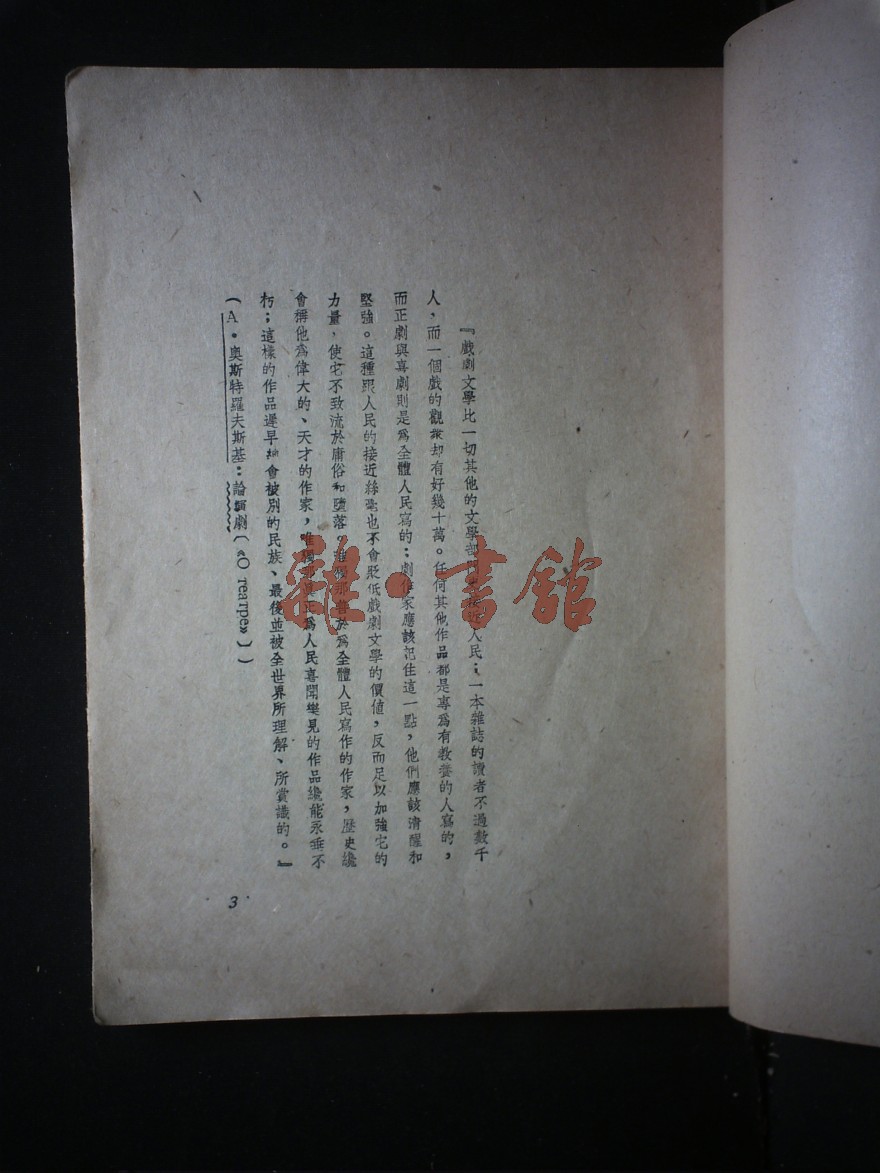 『戲劇文學比一切其他的文學部門更接近人民；一本雜誌的讀者不過數千
人，而一個戲的觀衆却有好幾十萬。任何其他作品都是專爲有教養的人寫的，
而正劇與喜劇則是爲全體人民寫的；劇作家應該記住這一點，他們應該清醒和
堅強。這種跟人民的接近絲毫也不會貶低戲劇文學的價值，反而足以加強它的
力量，使它不致流於庸俗和墮落。唯獨那善於爲全體人民寫作的作家，歷史纔
會稱他爲偉大的、天才的作家，唯獨那真正爲人民喜聞樂見的作品纔能永垂不
朽；這樣的作品遲早總會被別的民族、最後並被全世界所理解、所賞識的。』
（A·奧斯特羅夫斯基：論演劇（«О театре»））
3
雜·書館